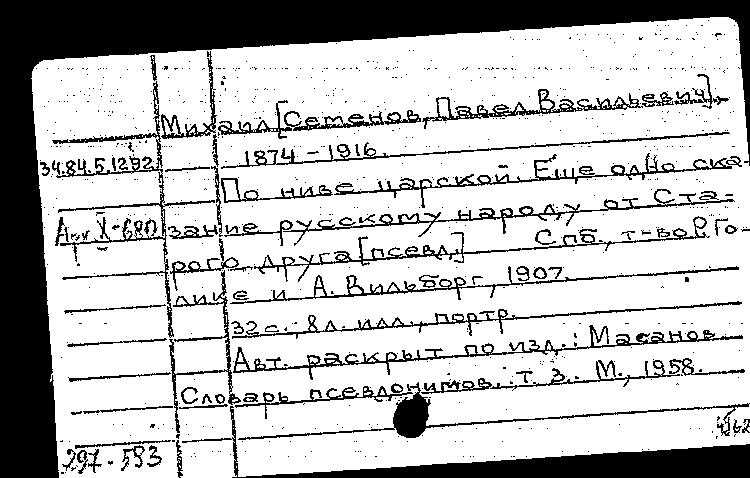 Михаил [Семенов, Павел Васильевич],
34.84.5.1292 1874-1916.
По ниве царской. Еще одно ска-
зание русскому народу от Ста-
рого друга [псевд.] Спб., т-во Р. Го-
лике и А. Вильборг, 1907.
32 с.; 8 л. илл., портр.
Авт. раскрыт по изд.: Масанов
Словарь псевдонимов. т. 3. М., 1958.
297-593